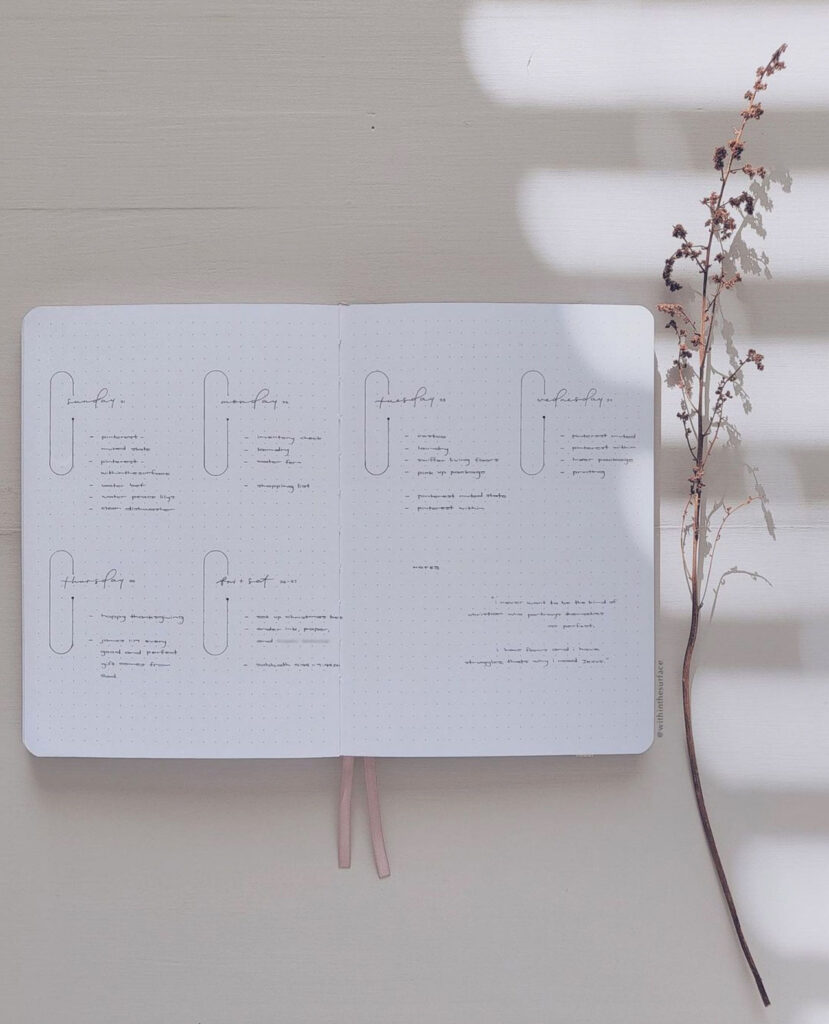 sunday
- pinterest -
muted state
- pinterest -
withinthesurface
- water leaf
- water peace lilys
- clean dishwasher
monday
- inventory check
- laundry
- water fern
- shopping list
tuesday
- costco
- laundry
- swiffer living floors
- pick up package
- pinterest muted state
- pinterest within
wednesday
- pinterest muted
- pinterest within
- package
- printing
thursday
- happy thanksgiving
- james 1:17 every
good and perfect
gift comes from
God
fri + sat
- set up christmas
- order ink, paper,
and
- sabbath
notes
"i never want to be the kind of
christian who portrays themselves
as perfect.
i have flaws and i have
struggles thats why i need Jesus."
@withinthesurface